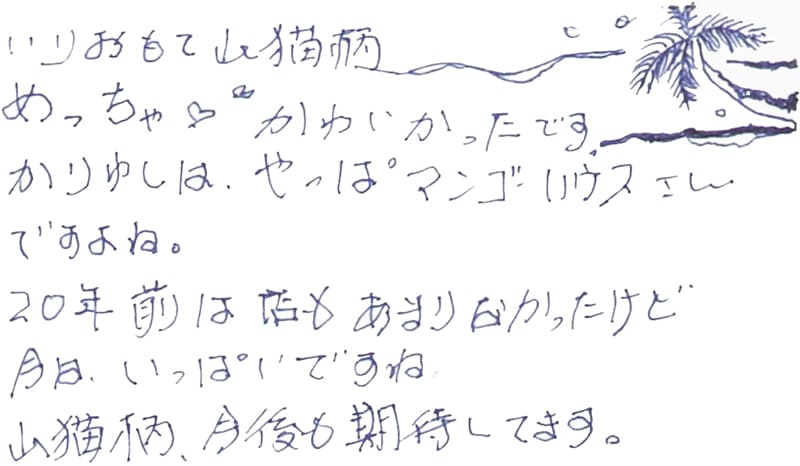 いりおもて山猫柄
めっちゃ♡かわいかったです。
かりゆしは、やっぱマンゴーハウスさん
ですよね。
20年前は店もあまりなかったけど
今は、いっぱいですね
山猫柄、今後も期待してます。